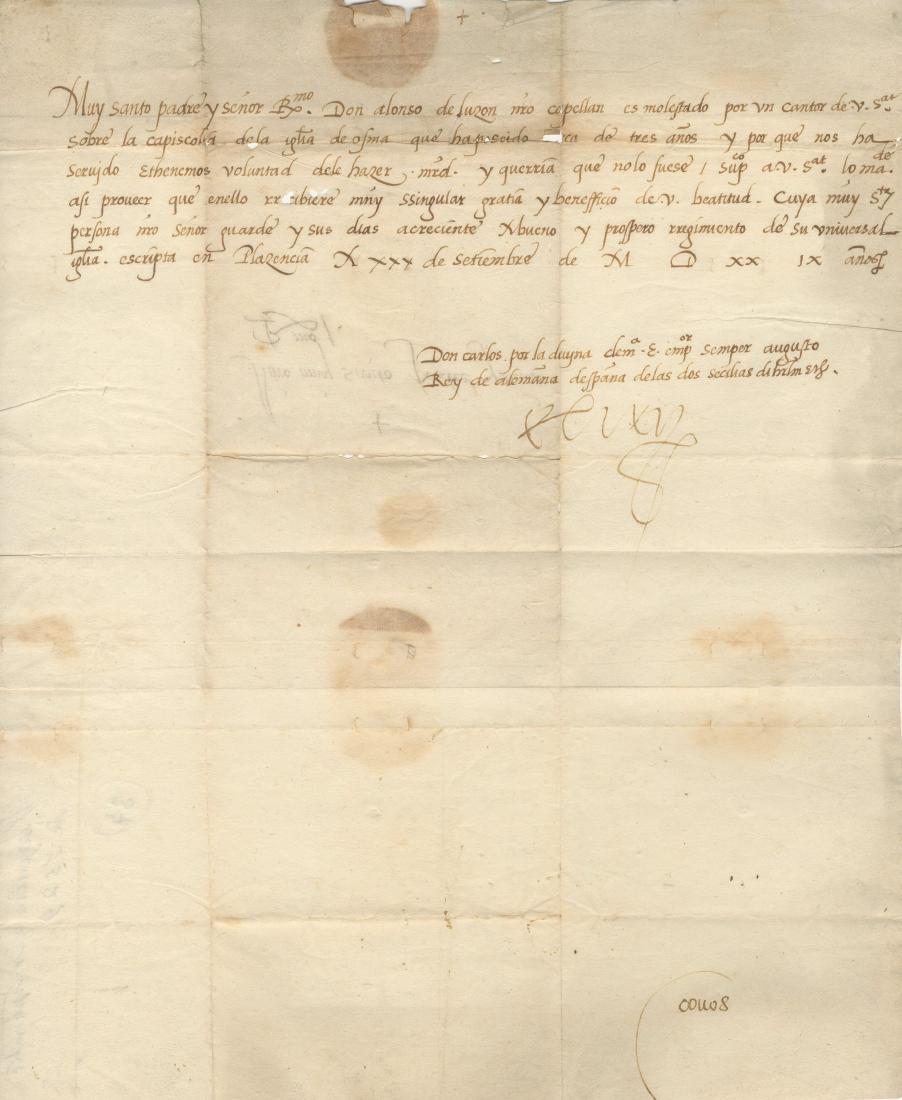 +
Muy santo padre y señor Rmo. Don alonso de luzon nro capellan es molestado por vn cantor de v. sat
sobre la capiscolia dela iglia de osma que ha poseido de tres años y por que nos ha
seruido Ethenemos voluntad dele hazer mrd. y querria que nolo fuese / supco a v. sat lo mande
asi proveer que enello rrecibiere muy ssingular gratia y benefficio de v. beatitud. Cuya muy
persona nro señor guarde y sus dias acreciente Abueno y prospero rregimiento de su vniversal
iglia. escripta en Plazencia A xxx de setiembre de M D xx ix años
Don carlos por la diuyna clema. E. empor semper augusto
Rey de alemana despana delas dos secilias
couos